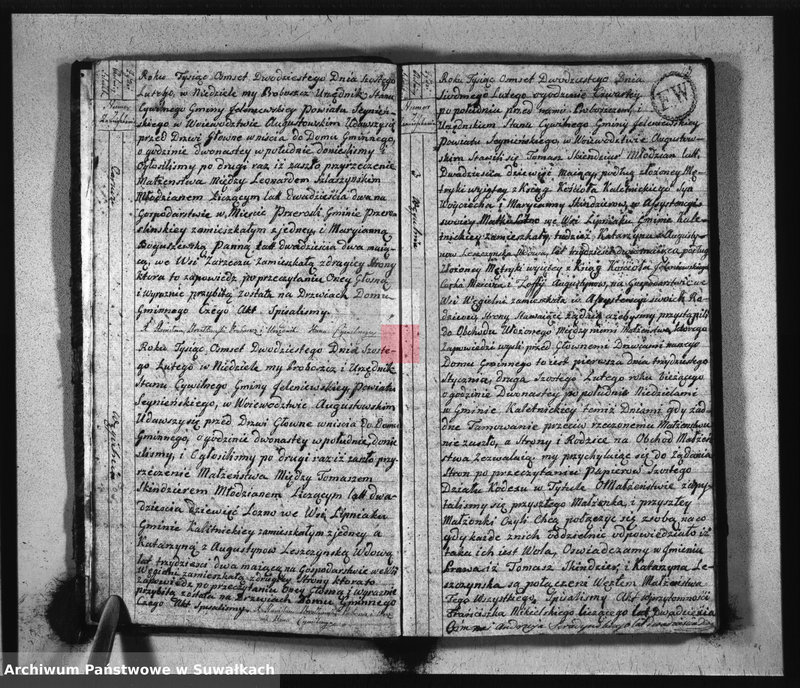 Roku Tysiąc Osmset Dwodziestego Dnia Szostego
Lutego, w Niedziele my Proboszcz Urzędnik Stanu
Cywilnego Gminy Jeleniewskiey Powiatu Seynień-
skiego w Woiewodztwie Augustowskim Udawszy się
przed Drzwi Głowne wniscia do Domu Gminnego,
o godzinie dwonastey w południe donieslismy i
Ogłosilismy po drugi raz iż zaszło przyrzeczenie
Małżenstwa Między Leonardem
Młodzianem Liczącym lat dwadzieścia dwa na
Gospodarstwie w Miescie Przerosli Gminie Przero-
slinskiey zamieszkałym z jedney, i Maryianną
Boguszewską Panną lat dwadzieścia dwa maią-
cą, we Wsi zamieszkałą z drugiey Strony
ktora to zapowiedz po przeczytaniu Oney Głosno
i wyraznie przybitą została na Drzwiach Domu
Gminnego Czego Akt Spisalismy.
Roku Tysiąc Osmset Dwodziestego Dnia Szoste-
go Lutego w Niedziele my Proboszcz i Urzędnik
Stanu Cywilnego Gminy Jeleniewskiey Powiatu
Seynieńskiego, w Woiewodztwie Augustowskim
Udawszy się przed Drzwi Głowne wniscia do Domu
Gminnego, o godzinie dwonastey w południe, donie-
slismy, i Ogłosilismy po drugi raz iż zaszło przy-
rzeczenie Małżenstwa Między Tomaszem
Skindzierem Młodzianem Liczącym lat dwa-
dziescia dziewięć we Wsi Lipniaku
Gminie Kaletnickiey zamieszkałym z jedney a
Katarzyną z Augustynow Leszczynską Wdową
lat trzydziesci dwa maiącą na Gospodarstwie we Wsi
Węgielni zamieszkałą z drugiey Strony ktora to
zapowiedz po przeczytaniu Oney Głosno i wyraznie
przybitą została na Drzwiach Domu Gminnego
Czego Akt Spisalismy.
Numer
F.W
3
Roku Tysiąc Osmset Dwudziestego Dnia
Siodmego Lutego o godzinie czwartey
po południu przed nami Proboszczem i
Urzędnikiem Stanu Cywilnego Gminy Jeleniewskiey
Powiatu Seynienskiego, w Woiewodztwie Augustow-
skim Stawili się Tomasz Skindzier Młodzian lat
Dwadziescia dziewięć maiący, podług złożoney Me-
tryki wyiętey z Ksiąg Kościoła Kaletnickiego Syn
Woyciecha i Maryianny Skindzierow, w Assystencyi
swoiey Matki we Wsi Lipniaku Gminie Kale-
tnickiey zamieszkały, tudzież Katarzyna z Augusty-
now Leszczynska Wdowa, lat trzydziesci dwa maiąca podług
złożoney Metryki wyiętey z Ksiąg Kościoła Jeleniewskiego
Corka i Zofij Augustynow, na Gospodarstwie we
Wsi Węgielni zamieszkała w Assystencyi swoich Ro-
dzicow, Strony Stawaiące żądaią abysmy przystąpili
do Obchodu Ułożonego Między niemi Małżenstwa, ktorego
Zapowiedzi wyszli przed Głownemi Drzwiami naszego
Domu Gminnego to iest pierwsza dnia trzydziestego
Stycznia, druga Szostego Lutego roku bieżącego
o godzinie Dwonastey po południe Niedzielami
w Gminie Kaletnickiey temiż Dniami gdy żad-
ne Tamowanie przeciw rzeczonemu Małżenstwu
nie zaszło, a Strony i Rodzice na Obchod Małżen-
stwa Zezwalaią my przychylaiąc się do żądania
Stron po przeczytaniu Papierow Szostego
Działu Kodexu w Tytule O Małżenstwie zapy-
talismy się przyszłego Małżonka, i przyszłey
Małżonki Czyli Chcą połączyć się z sobą na co
gdy każde z nich oddzielnie odpowiedziało iż
taka ich iest Wola, Oswiadczamy w Imieniu
Prawa iż Tomasz Skindzier, i Katarzyna Le-
szczynska są połączeni Węzłem Małżenstwa
Tego Wszystkiego, Spisalismy Akt w przytomności
Franciszka liczącego lat dwadziescia
Archiwum Państwowe w Suwałkach